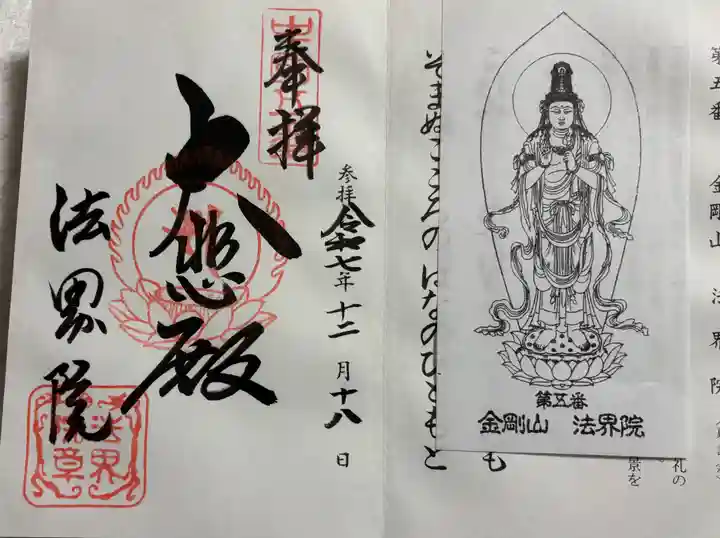 第五番 金剛山 法界院
礼の
景を
第五番
金剛山 法界院
そまぬこころの はなのひともと
も
奉拝
参拝 令和七年 十二月 十八日
大悲殿
法界院
法界
院章